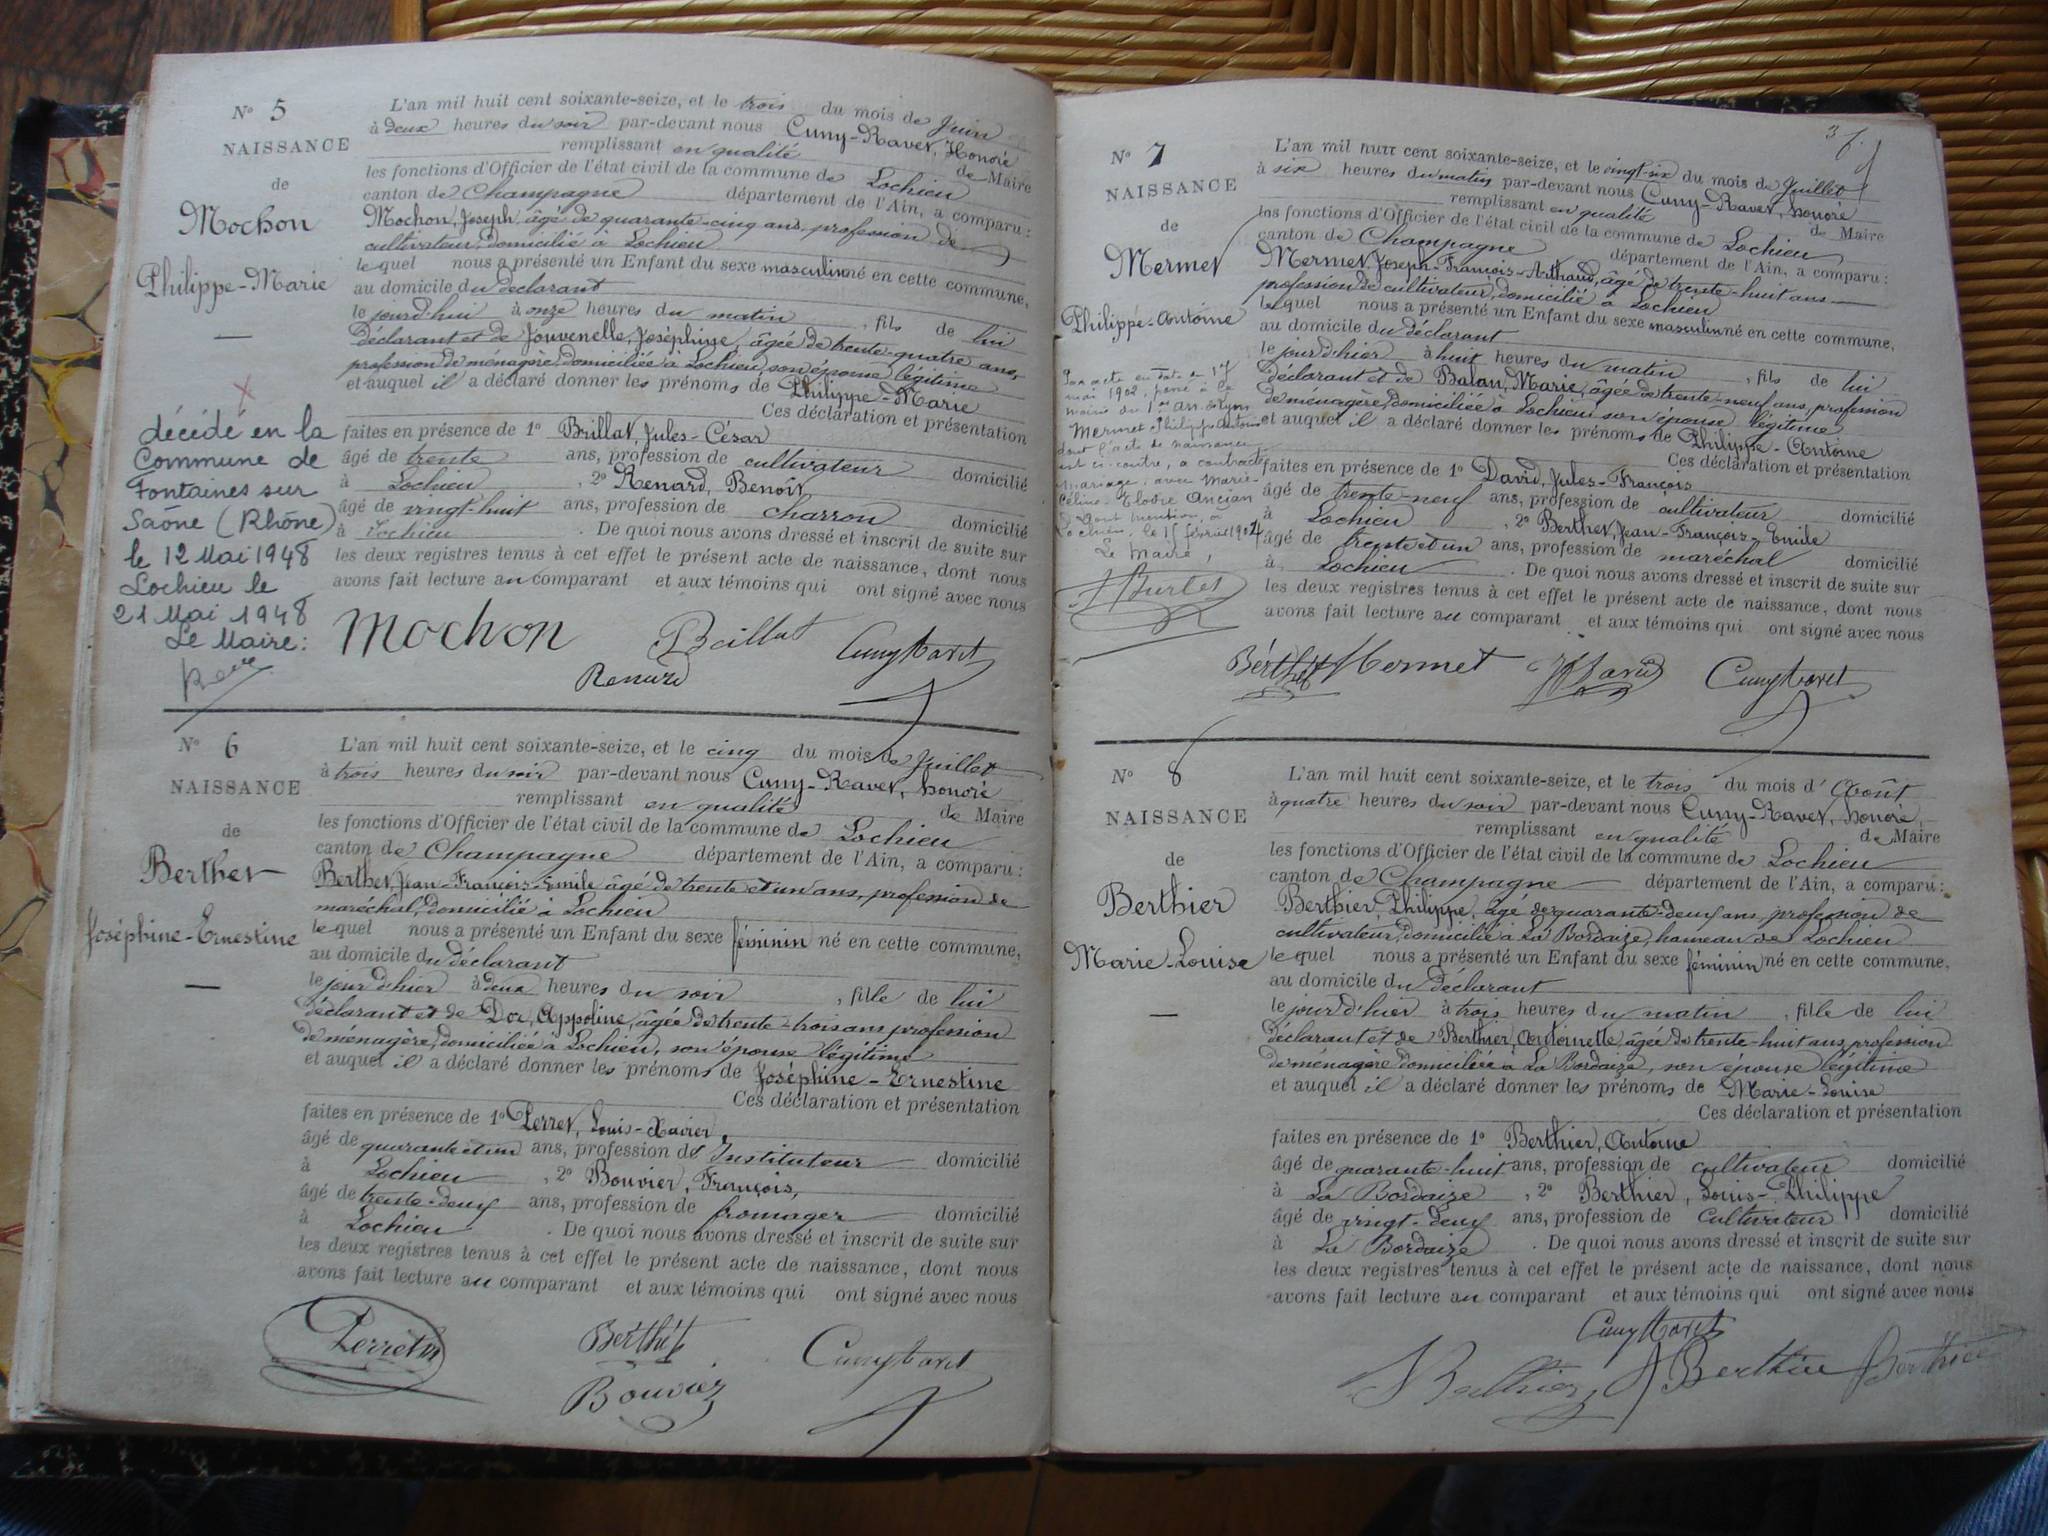 N° 5
NAISSANCE
de
Mochon
Philippe-Marie
décédé en la
Commune de
Fontaines sur
Saône (Rhône)
le 12 Mai 1948
Lochieu le
21 Mai 1948
Le Maire :
L'an mil huit cent soixante-seize, et le trois du mois de Juin
à deux heures du soir par-devant nous Cuny-Ravet, Honoré
remplissant en qualité de Maire
les fonctions d'Officier de l'état civil de la commune de Lochieu
canton de Champagne département de l'Ain, a comparu :
Mochon, Joseph, âgé de quarante-cinq ans, profession de
cultivateur, domicilié à Lochieu
lequel nous a présenté un Enfant du sexe masculin né en cette commune,
au domicile du déclarant
le jourd'hui à onze heures du matin, fils de lui
déclarant et de Jouvenelle, Joséphine, âgée de trente-quatre ans,
profession de ménagère, domiciliée à Lochieu, son épouse légitime
et auquel il a déclaré donner les prénoms de Philippe-Marie
Ces déclaration et présentation
faites en présence de 1° Brillat, Jules-César
âgé de trente ans, profession de cultivateur domicilié
à Lochieu, 2° Renard, Benoît
âgé de vingt-huit ans, profession de charron domicilié
à Lochieu. De quoi nous avons dressé et inscrit de suite sur
les deux registres tenus à cet effet le présent acte de naissance, dont nous
avons fait lecture au comparant et aux témoins qui ont signé avec nous
Mochon Brillat CunyRavet
Renard
N° 6
NAISSANCE
de
Berthet
Joséphine-Ernestine
L'an mil huit cent soixante-seize, et le cinq du mois de Juillet
à trois heures du soir par-devant nous Cuny-Ravet, honoré
remplissant en qualité de Maire
les fonctions d'Officier de l'état civil de la commune de Lochieu
canton de Champagne département de l'Ain, a comparu :
Berthet, Jean-François-Emile âgé de trente et un ans, profession de
maréchal, domicilié à Lochieu
lequel nous a présenté un Enfant du sexe féminin né en cette commune,
au domicile du déclarant
le jour d'hier à deux heures du soir, fille de lui
déclarant et de Doc, Appoline, âgée de trente-trois ans profession
de ménagère, domiciliée à Lochieu, son épouse légitime
et auquel il a déclaré donner les prénoms de Joséphine-Ernestine
Ces déclaration et présentation
faites en présence de 1° Perret, Louis-Xavier,
âgé de quarante et un ans, profession d'Instituteur domicilié
à Lochieu, 2° Bouvier, François,
âgé de trente-deux ans, profession de fromager domicilié
à Lochieu. De quoi nous avons dressé et inscrit de suite sur
les deux registres tenus à cet effet le présent acte de naissance, dont nous
avons fait lecture au comparant et aux témoins qui ont signé avec nous
Perret Berthet CunyRavet
Bouvier
N° 7
NAISSANCE
de
Mermet
Philippe-Antoine
Par acte en date du 1er
mai 1902, passé à la
mairie du 1er arr de Lyon
Mermet Philippe Antoine
dont l'acte de naissance
est ci-contre, a contracté
mariage, avec Marie-
Céline Elodie Ancian
Dont mention à
Lochieu, le 15 février 1904
Le Maire,
Burlet
L'an mil huit cent soixante-seize, et le vingt-six du mois de Juillet
à six heures du matin par-devant nous Cuny-Ravet, honoré
remplissant en qualité de Maire
les fonctions d'Officier de l'état civil de la commune de Lochieu
canton de Champagne département de l'Ain, a comparu :
Mermet, Joseph-François-Arthaud, âgé de trente-huit ans
profession de cultivateur, domicilié à Lochieu
lequel nous a présenté un Enfant du sexe masculin né en cette commune,
au domicile du déclarant
le jour d'hier à huit heures du matin, fils de lui
déclarant et de Balan, Marie, âgée de trente-neuf ans, profession
de ménagère, domiciliée à Lochieu son épouse légitime
et auquel il a déclaré donner les prénoms de Philippe-Antoine
Ces déclaration et présentation
faites en présence de 1° David, Jules-François
âgé de trente-neuf ans, profession de cultivateur domicilié
à Lochieu, 2° Berthet, Jean-François-Emile
âgé de trente et un ans, profession de maréchal domicilié
à Lochieu. De quoi nous avons dressé et inscrit de suite sur
les deux registres tenus à cet effet le présent acte de naissance, dont nous
avons fait lecture au comparant et aux témoins qui ont signé avec nous
Berthet Mermet David CunyRavet
N° 8
NAISSANCE
de
Berthier
Marie-Louise
L'an mil huit cent soixante-seize, et le trois du mois d'Août
à quatre heures du soir par-devant nous Cuny-Ravet, honoré,
remplissant en qualité de Maire
les fonctions d'Officier de l'état civil de la commune de Lochieu
canton de Champagne département de l'Ain, a comparu :
Berthier, Philippe, âgé de quarante-deux ans, profession de
cultivateur, domicilié à La Bordaize, hameau de Lochieu
lequel nous a présenté un Enfant du sexe féminin né en cette commune,
au domicile du déclarant
le jour d'hier à trois heures du matin, fille de lui
déclarant et de Berthier, Antoinette âgée de trente-huit ans, profession
de ménagère domiciliée à La Bordaize, son épouse légitime
et auquel il a déclaré donner les prénoms de Marie-Louise
Ces déclaration et présentation
faites en présence de 1° Berthier, Antoine
âgé de quarante-huit ans, profession de cultivateur domicilié
à La Bordaize, 2° Berthier, Louis-Philippe
âgé de vingt-deux ans, profession de cultivateur domicilié
à La Bordaize. De quoi nous avons dressé et inscrit de suite sur
les deux registres tenus à cet effet le présent acte de naissance, dont nous
avons fait lecture au comparant et aux témoins qui ont signé avec nous
CunyRavet
Berthier Berthier Berthier